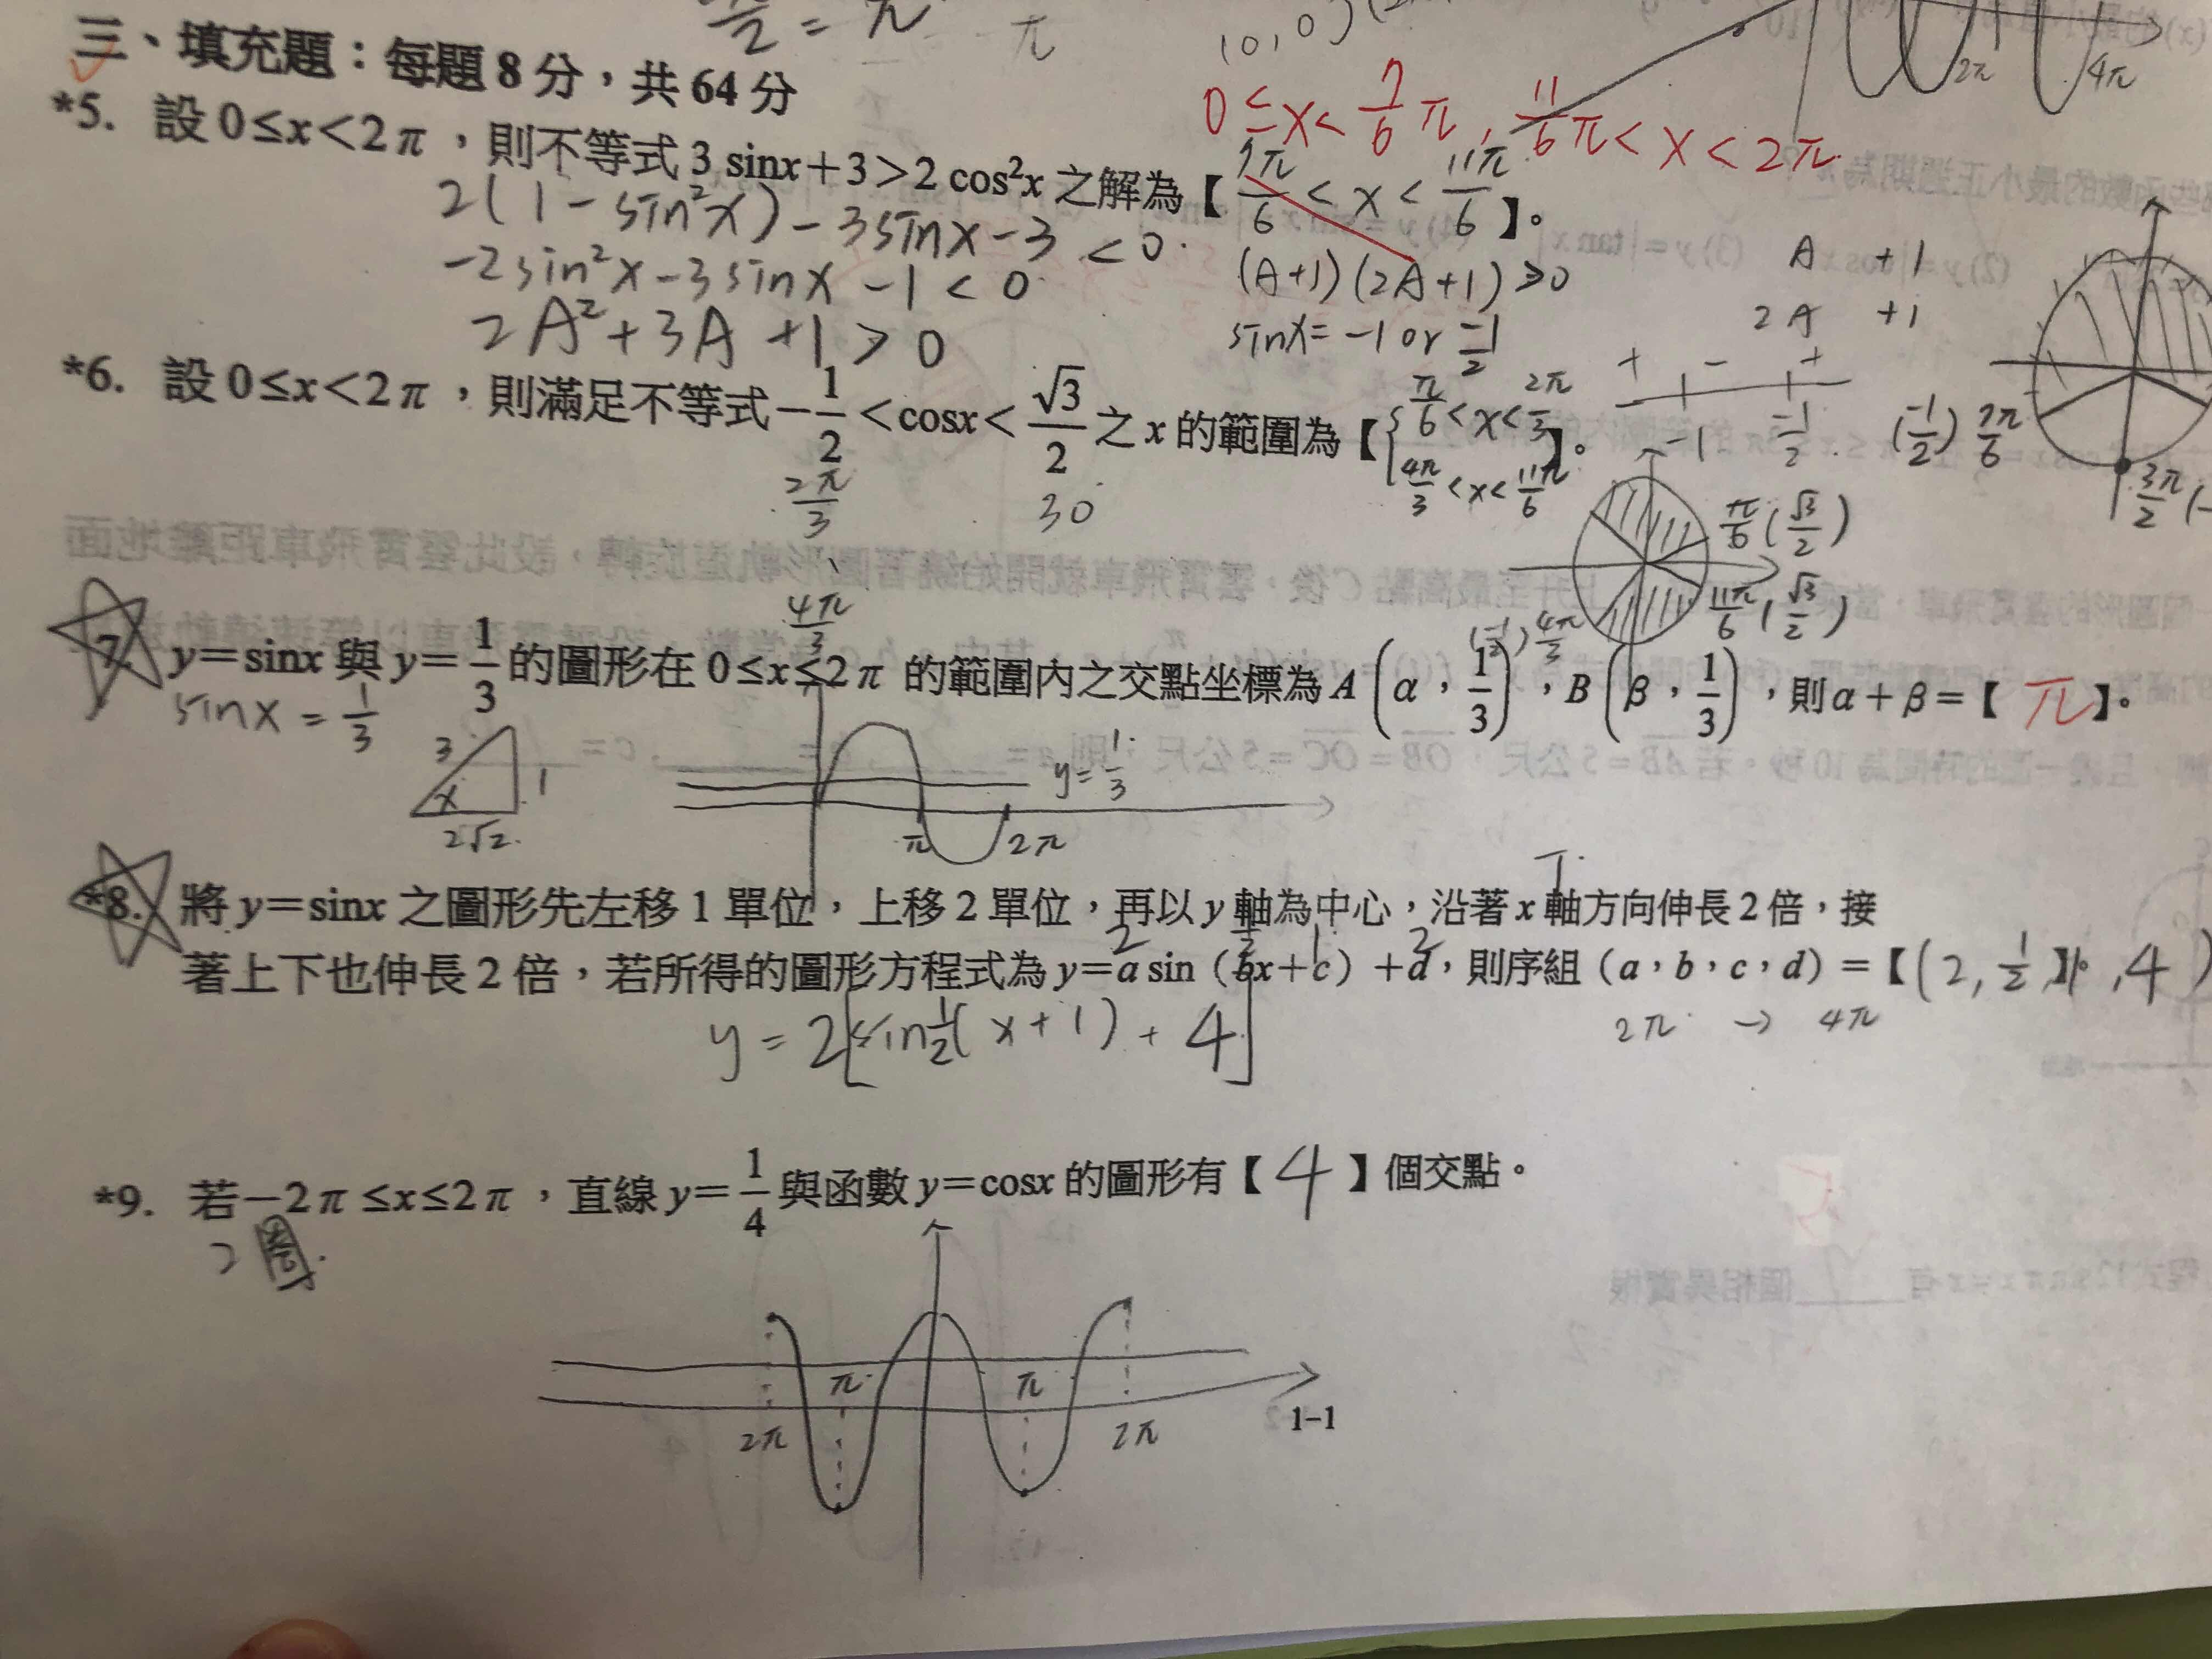 三、填充題：每題 8 分，共 64 分
0 ≤ x < 7/6 π , 11/6 π < x < 2π
2π 4π
*5. 設 0≤x<2π，則不等式 3 sinx+3>2 cos²x 之解為【 7π/6 < x < 11π/6 】。
2(1-sin²x)-3sinx-3 < 0
-2sin²x-3sinx-1 < 0
2A²+3A+1 > 0
(A+1)(2A+1) ≥ 0
sinx = -1 or -1/2
A +1
2A +1
+ - +
-1 -1/2
(-1/2) 7π/6
3π/2
*6. 設 0≤x<2π，則滿足不等式 -1/2 <cosx< √3/2 之 x 的範圍為【 π/6 < x < 2π/3 4π/3 < x < 11π/6 】。
2π/3、4π/3
30
π/6 (√3/2)
11π/6 (√3/2)
(-1/2) 4π/3
7. y=sinx 與 y= 1/3 的圖形在 0≤x≤2π 的範圍內之交點坐標為 A(α，1/3)，B(β，1/3)，則 α+β=【 π 】。
sinx = 1/3
3 1 x 2√2
y = 1/3
π 2π
*8. 將 y=sinx 之圖形先左移 1 單位，上移 2 單位，再以 y 軸為中心，沿著 x 軸方向伸長 2 倍，接
著上下也伸長 2 倍，若所得的圖形方程式為 y=a sin（bx+c）+d，則序組（a，b，c，d）=【(2, 1/2, 1, 4)】。
2 1/2 1 2
y = 2[sin 1/2(x+1) + 4]
2π → 4π
*9. 若 -2π≤x≤2π，直線 y= 1/4 與函數 y=cosx 的圖形有【 4 】個交點。
2圈
π π
2π 2π
1-1